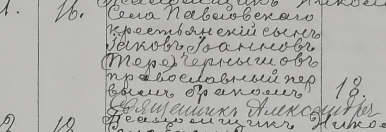 1. 16.
Села Павловскаго
крестьянскій сынъ
Іаковъ Іоанновъ
Чернышовъ
православный пер
вымъ бракомъ 18.
Священникъ Александръ
2.